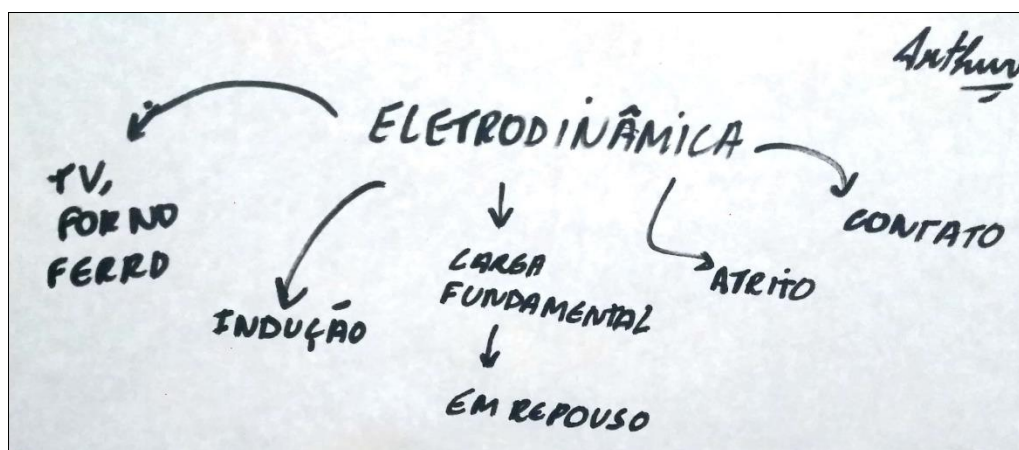 Arthur
ELETRODINÂMICA
TV,
FORNO
FERRO
INDUÇÃO
CARGA
FUNDAMENTAL
EM REPOUSO
ATRITO
CONTATO